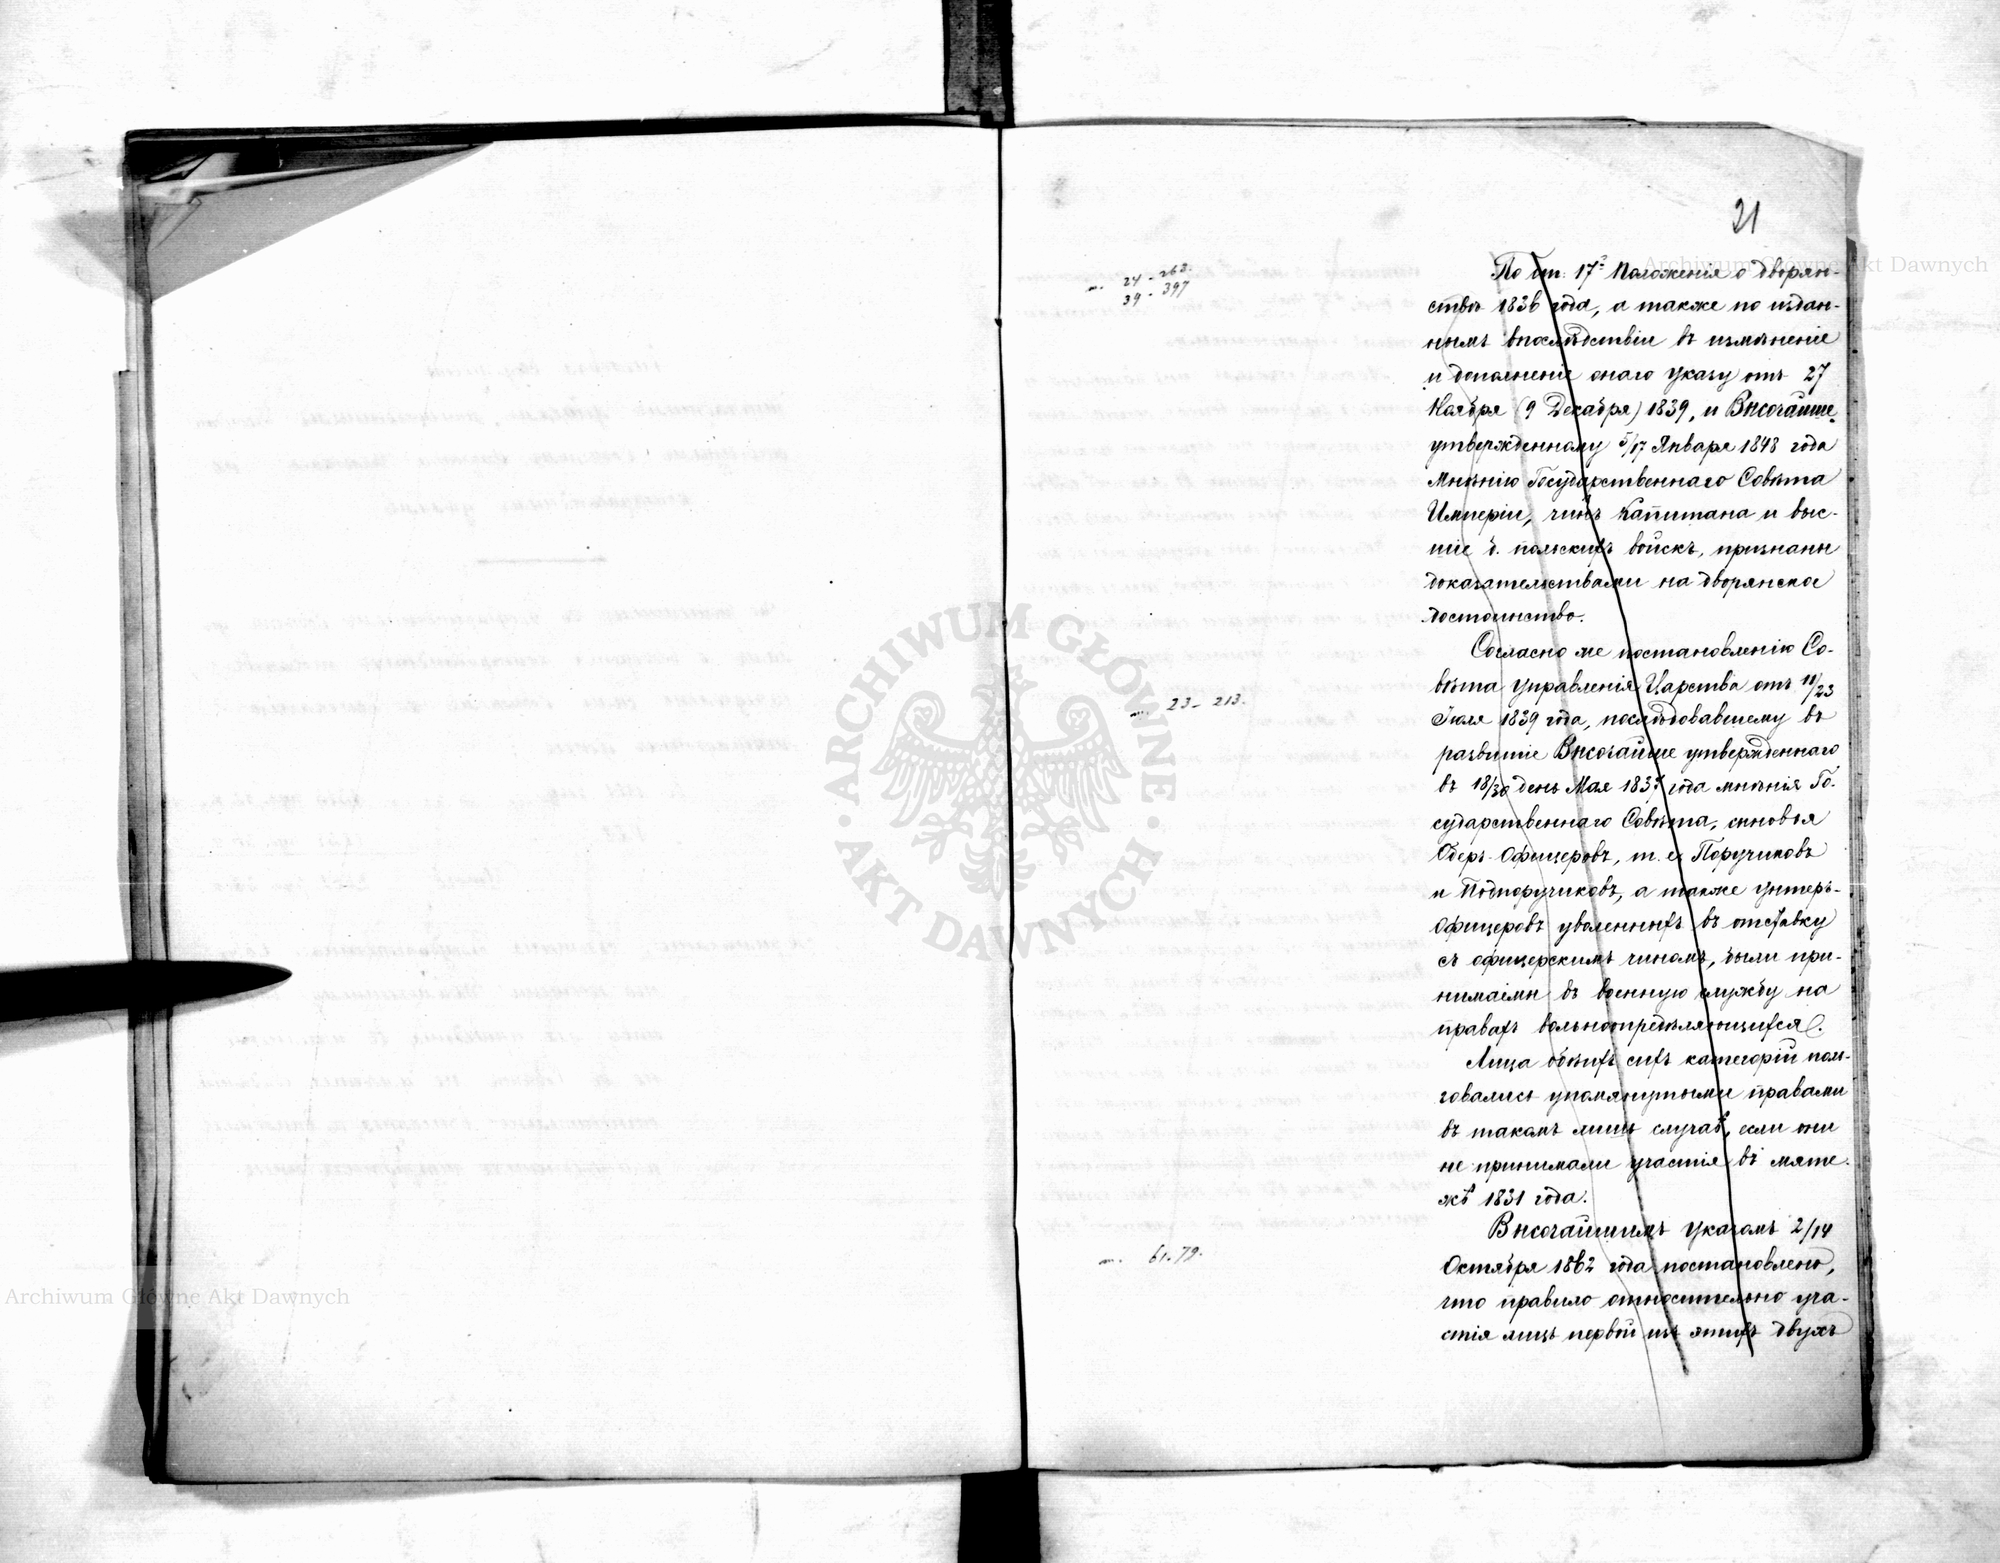 21
т. 24 - 262.
39 - 397
По ст. 17й Положенія о дворян-
ствѣ 1836 года, а также по издан-
нымъ впослѣдствіи въ измѣненіе
и дополненіе онаго указу отъ 27
Ноября (9 Декабря) 1839, и Высочайше
утвержденному 5/17 Января 1848 года
мнѣнію Государственнаго Совѣта
Имперіи, чинъ Капитана и выс-
шіе б. польскихъ войскъ, признаны
доказательствами на дворянское
достоинство.
т. 23 - 213.
Согласно же постановленію Со-
вѣта Управленія Царства отъ 11/23
Іюля 1839 года, послѣдовавшему въ
развитіе Высочайше утвержденнаго
въ 18/30 день Мая 1837 года мнѣнія Го-
сударственнаго Совѣта, сыновья
Оберъ-Офицеровъ, т. е. Поручиковъ
и Подпоручиковъ, а также унтеръ-
офицеровъ уволенныхъ въ отставку
съ офицерскимъ чиномъ, были при-
нимаемы въ военную службу на
правахъ вольноопредѣляющихся.
Лица обѣихъ сихъ категорій поль-
зовались упомянутыми правами
въ такомъ лишь случаѣ, если они
не принимали участія въ мяте-
жѣ 1831 года.
т. 61. 79.
Высочайшимъ указомъ 2/14
Октября 1862 года постановлено,
что правило относительно уча-
стія лицъ первой изъ этихъ двухъ
Archiwum Główne Akt Dawnych
Archiwum Główne Akt Dawnych
ARCHIWUM GŁÓWNE
AKT DAWNYCH